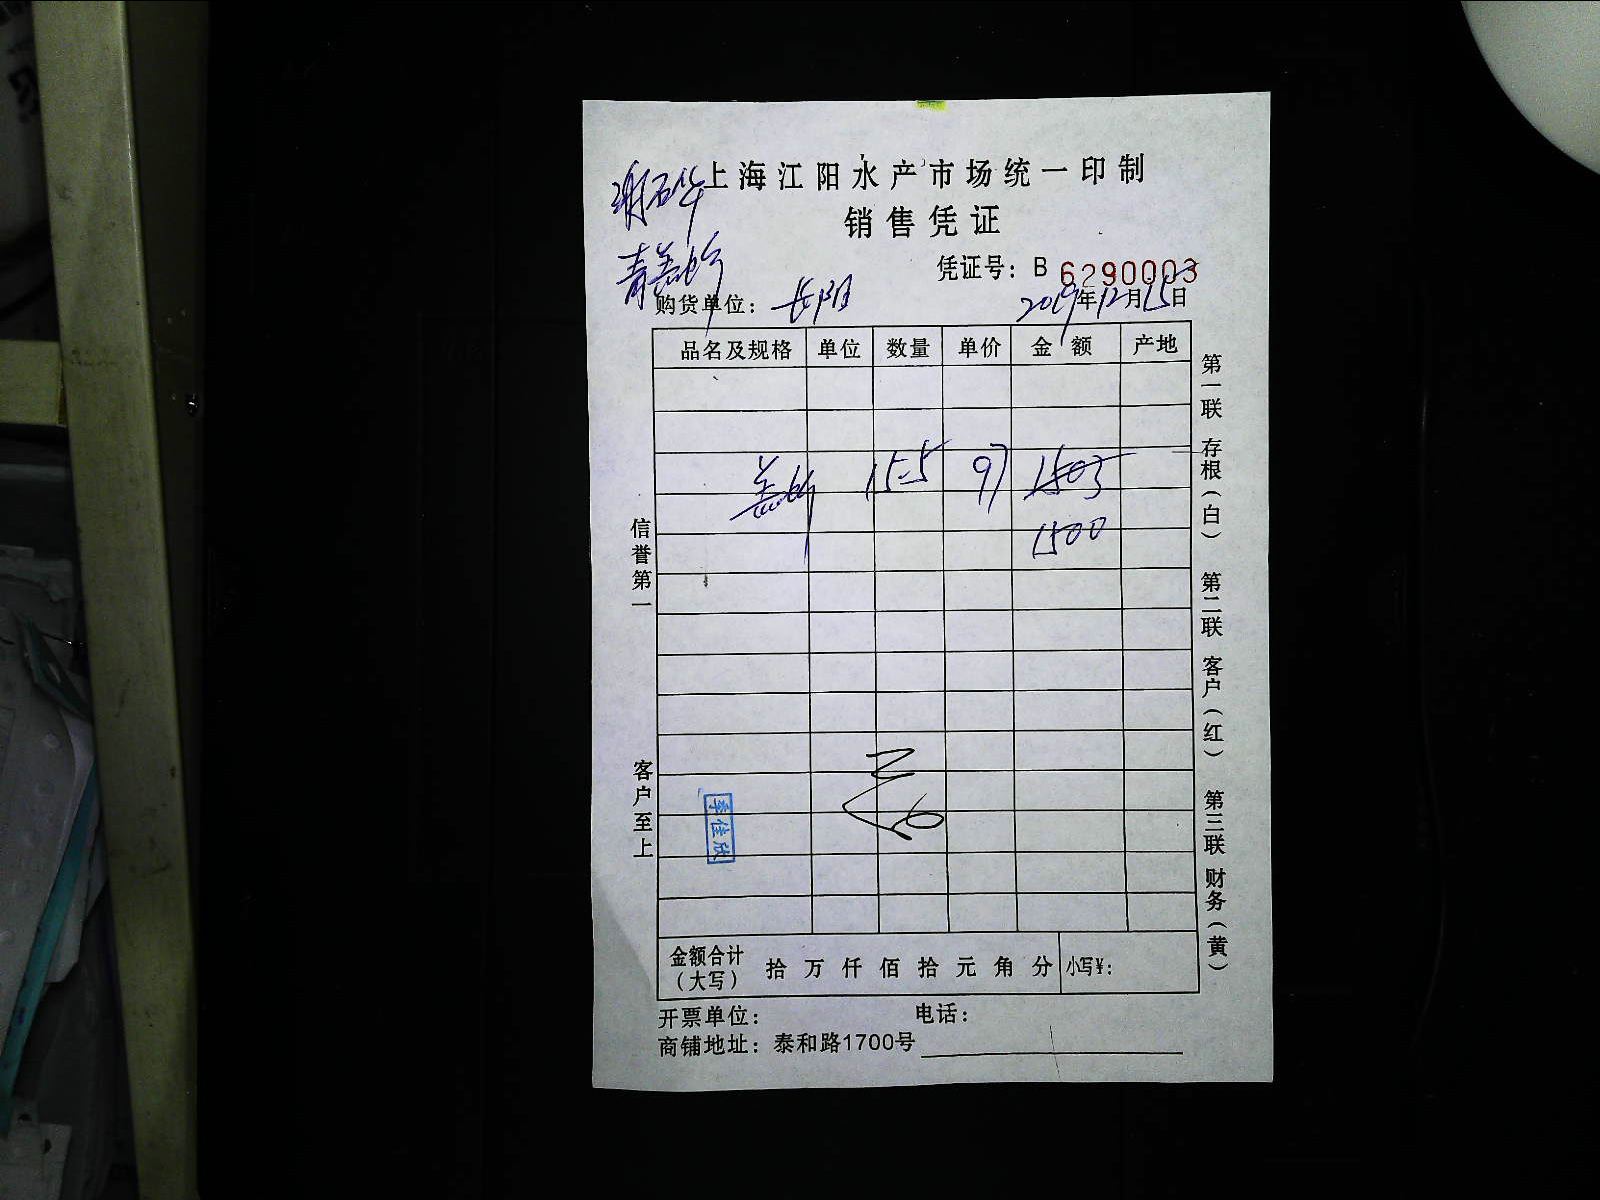 上海江阳水产市场统一印制
销售凭证
凭证号：B 6290003
购货单位：长阳 2019年12月15日
品名及规格 单位 数量 单价 金额 产地
15.5 97 1503
1500
信誉第一
客户至上
李佳欣
第一联 存根（白） 第二联 客户（红） 第三联 财务（黄）
金额合计（大写） 拾 万 仟 佰 拾 元 角 分 小写¥：
开票单位： 电话：
商铺地址：泰和路1700号